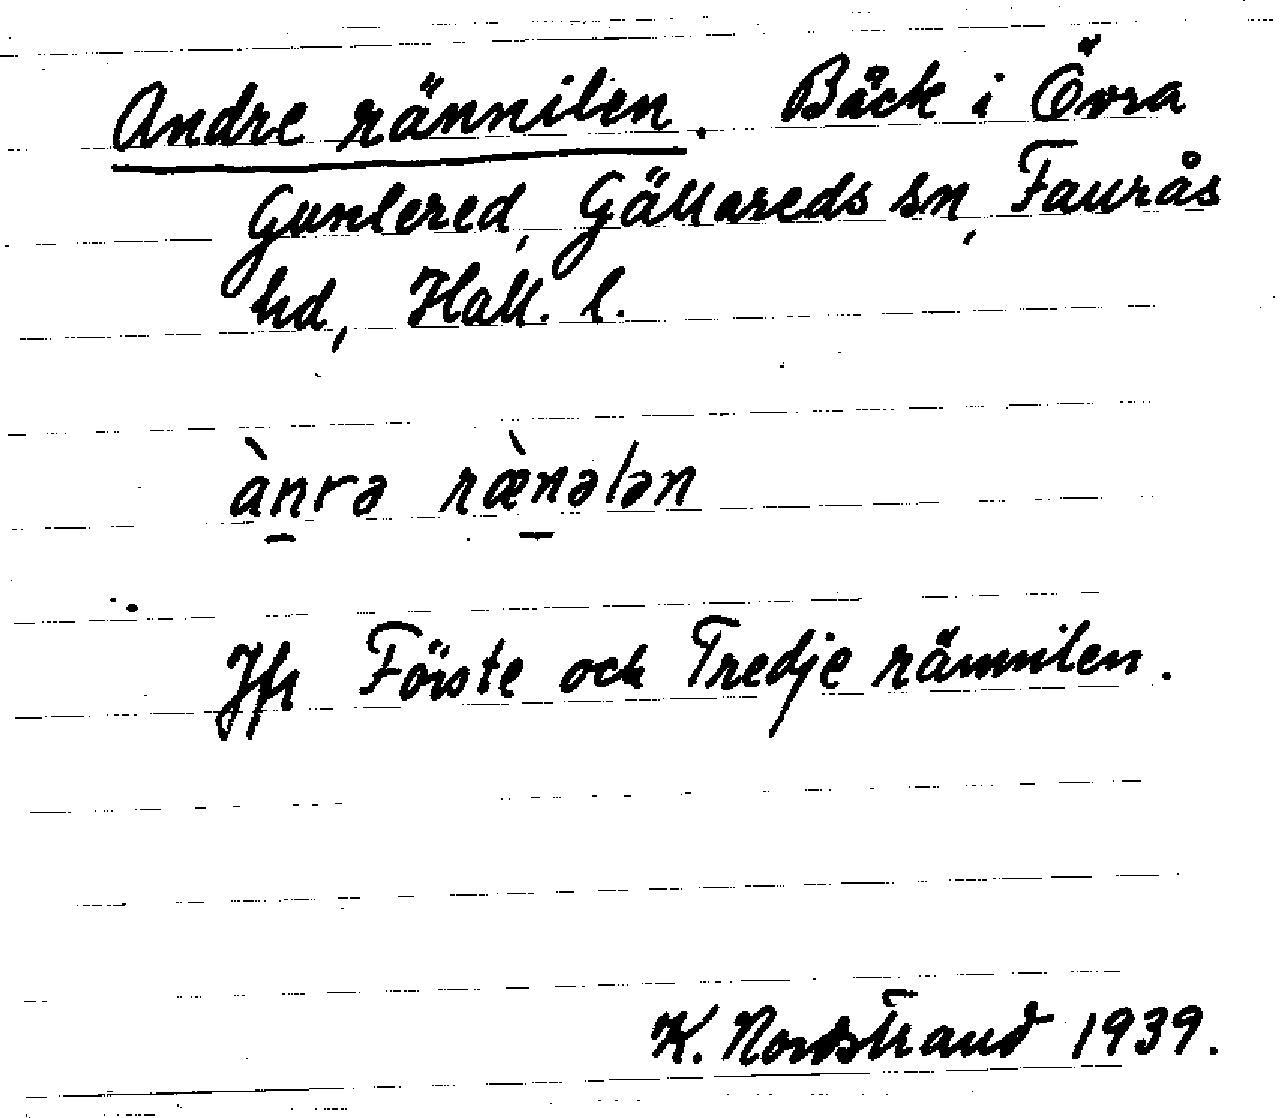 Andre rännilen. Bäck i Övra
Gunlered, Gällareds sn, Faurås
hd, Hall. l.
ànrə ræ̀nələn
Jfr Förste och Tredje rännilen.
K. Nordstrand 1939.